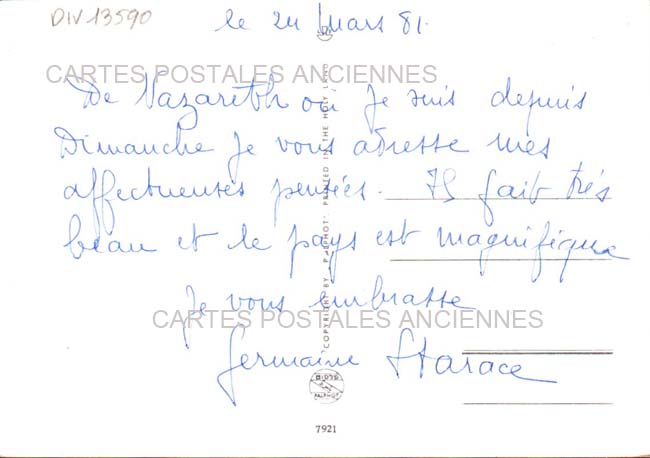 DIV 13590
le 24 mars 81.
CARTES POSTALES ANCIENNES
De Nazareth où je suis depuis
Dimanche je vous adresse mes
affectueuses pensées. Il fait très
beau et le pays est magnifique
Je vous embrasse
CARTES POSTALES ANCIENNES
Germaine Starace
COPYRIGHT BY "PALPHOT" PRINTED IN THE HOLY LAND
PALPHOT
7921